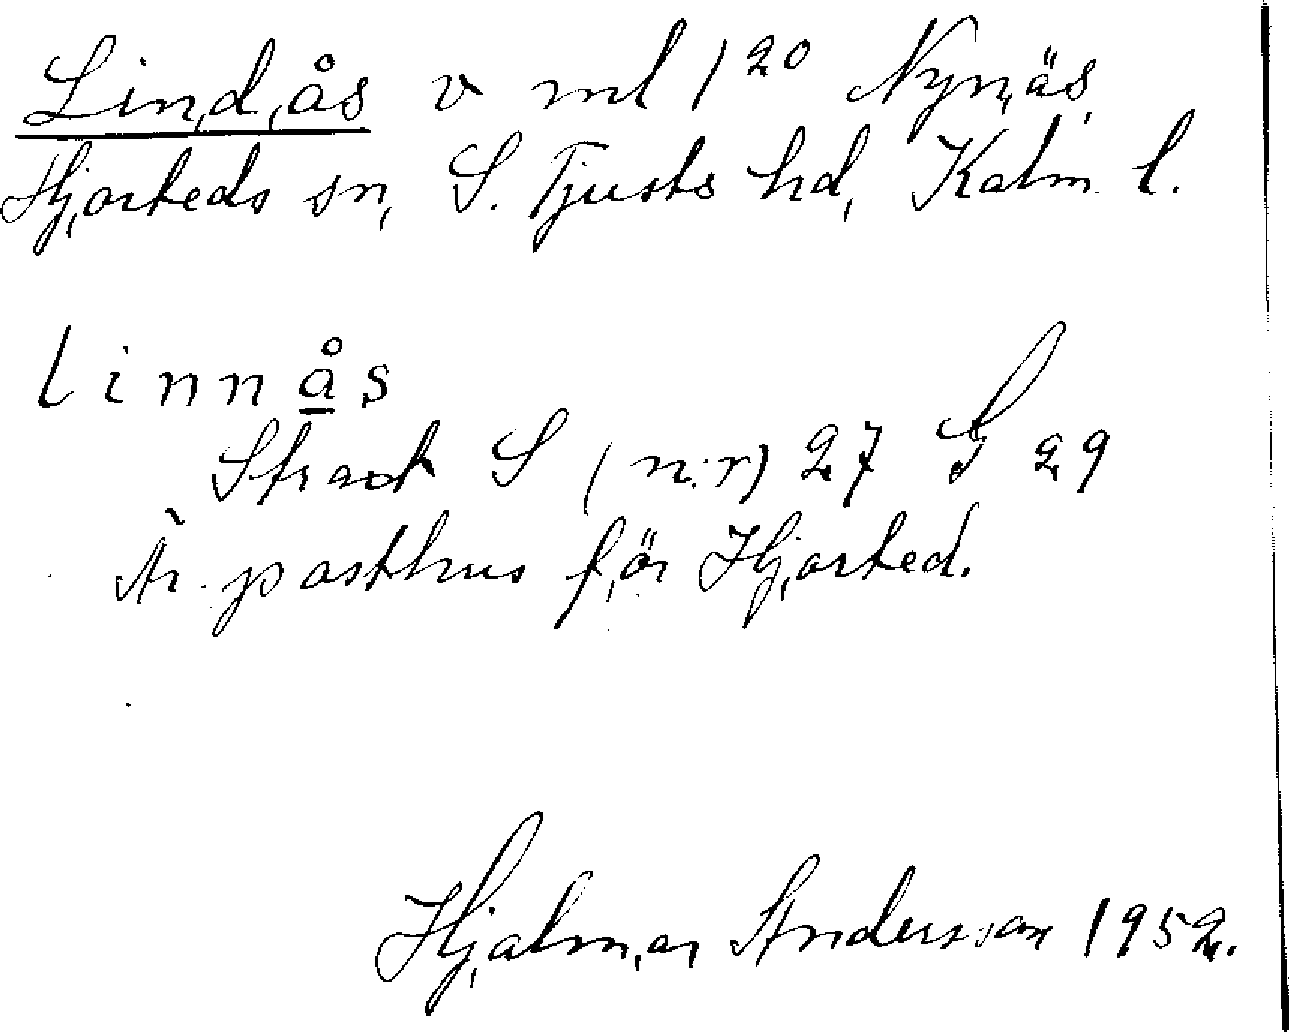 Lindås v ml 1²⁰ Nynäs
Hjorteds sn, S. Tjusts hd, Kalm. l.
linnås
Strack S (n:r) 27 G 29
Är posthus för Hjorted.
Hjalmar Andersson 1952.